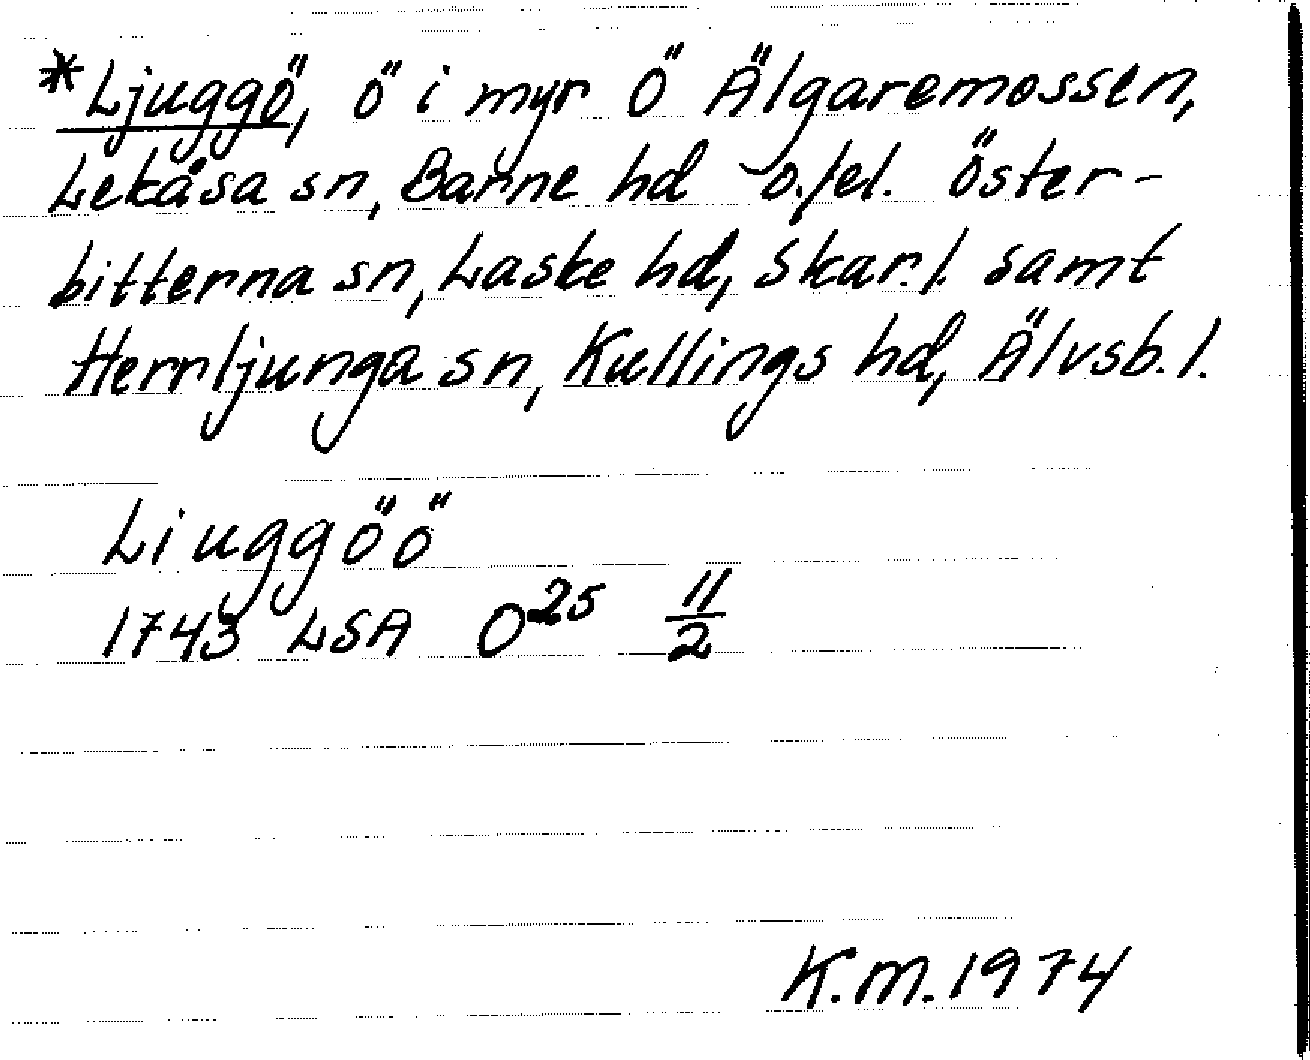 *Ljuggö, ö i myr Ö Älgaremossen,
Lekåsa sn, Barne hd o./el. Öster-
bitterna sn, Laske hd, Skar.l. samt
Herrljunga sn, Kullings hd, Älvsb.l.
Liuggöö
1743 LSA O25 11/2
K.M.1974